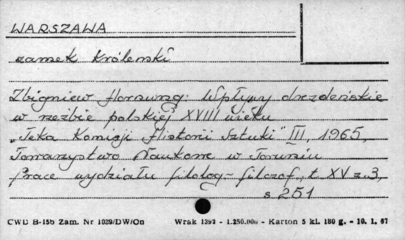 WARSZAWA
zamek Królewski
Zbigniew Hornung: Wpływy drezdeńskie
w rzeźbie polskiej XVIII wieku
„Teka Komisji Historii Sztuki" III, 1965,
Towarzystwo Naukowe w Toruniu
Prace wydziału filolog-filozof., t. XV z. 3,
s 251
CWD B-15b Zam. Nr 1029/DW/On Wrak 1292 - 1.250.00n - Karton 5 kl. 180 g. - 10. 1. 67